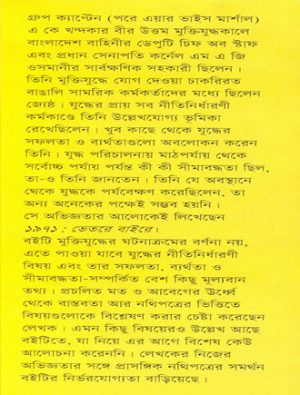 গ্রুপ ক্যাপ্টেন (পরে এয়ার ভাইস মার্শাল)
এ কে খন্দকার বীর উত্তম মুক্তিযুদ্ধকালে
বাংলাদেশ বাহিনীর ডেপুটি চিফ অব স্টাফ
এবং প্রধান সেনাপতি কর্নেল এম এ জি
ওসমানীর সার্বক্ষণিক সহকারী ছিলেন।
তিনি মুক্তিযুদ্ধে যোগ দেওয়া চাকরিরত
বাঙালি সামরিক কর্মকর্তাদের মধ্যে ছিলেন
জ্যেষ্ঠ। যুদ্ধের প্রায় সব নীতিনির্ধারণী
কর্মকাণ্ডে তিনি উল্লেখযোগ্য ভূমিকা
রেখেছিলেন। খুব কাছে থেকে যুদ্ধের
সফলতা ও ব্যর্থতাগুলো অবলোকন করেন
তিনি। যুদ্ধ পরিচালনায় মাঠপর্যায় থেকে
সর্বোচ্চ পর্যায় পর্যন্ত কী কী সীমাবদ্ধতা ছিল,
তা-ও তিনি জানতেন। তিনি যে অবস্থানে
থেকে যুদ্ধকে পর্যবেক্ষণ করেছিলেন, তা
অন্য অনেকের পক্ষেই সম্ভব হয়নি।
সে অভিজ্ঞতার আলোকেই লিখেছেন
১৯৭১: ভেতরে বাইরে।
বইটি মুক্তিযুদ্ধের ঘটনাক্রমের বর্ণনা নয়,
এতে পাওয়া যাবে যুদ্ধের নীতিনির্ধারণী
বিষয় এবং তার সফলতা, ব্যর্থতা ও
সীমাবদ্ধতা-সম্পর্কিত বেশ কিছু মূল্যবান
তথ্য। প্রচলিত মত ও আবেগের ঊর্ধ্বে
থেকে বাস্তবতা আর নথিপত্রের ভিত্তিতে
বিষয়গুলোকে বিশ্লেষণ করার চেষ্টা করেছেন
লেখক। এমন কিছু বিষয়েরও উল্লেখ আছে
বইটিতে, যা নিয়ে এর আগে বিশেষ কেউ
আলোচনা করেননি। লেখকের নিজের
অভিজ্ঞতার সঙ্গে প্রাসঙ্গিক নথিপত্রের সমর্থন
বইটির নির্ভরযোগ্যতা বাড়িয়েছে।